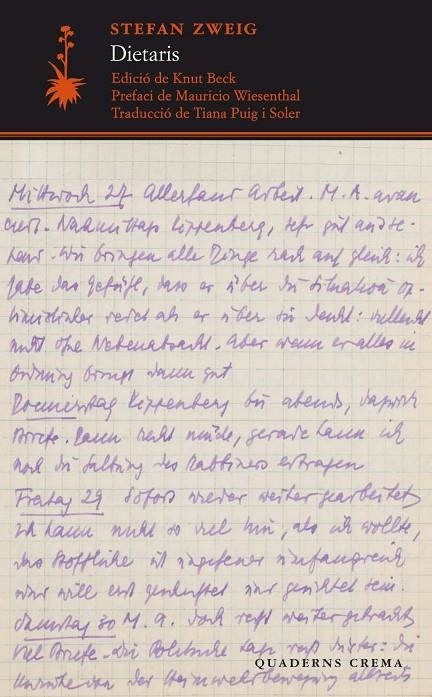 STEFAN ZWEIG
Dietaris
Edició de Knut Beck
Prefaci de Mauricio Wiesenthal
Traducció de Tiana Puig i Soler
Mittwoch 27 Allerhand Arbeit. M. A. avan
ciert. Nachmittags Kippenberg, sehr gut und
Wir bringen alle Dinge rasch auf gleich: ich
habe das Gefühl, dass er über die Situation op-
timistischer redet als er über sie denkt: vielleicht
nicht ohne Nebenabsicht. Aber wenn er alles in
Ordnung bringt dann gut
Donnerstag Kippenberg bis abends, dazwisch
Briefe. Dann recht müde, gerade kann ich
noch die des Rabbiners ertragen
Freitag 29 Sofort wieder weiter gearbeitet
ich kann nicht so viel tun, als ich wollte,
das Stoffliche ist ungeheuer umfangreich
und will erst und gesichtet sein.
Samstag 30 M. A. doch recht weiter gebracht
Viel Briefe. Die Politische Lage düster: die
von der Heimwehrbewegung
QUADERNS CREMA